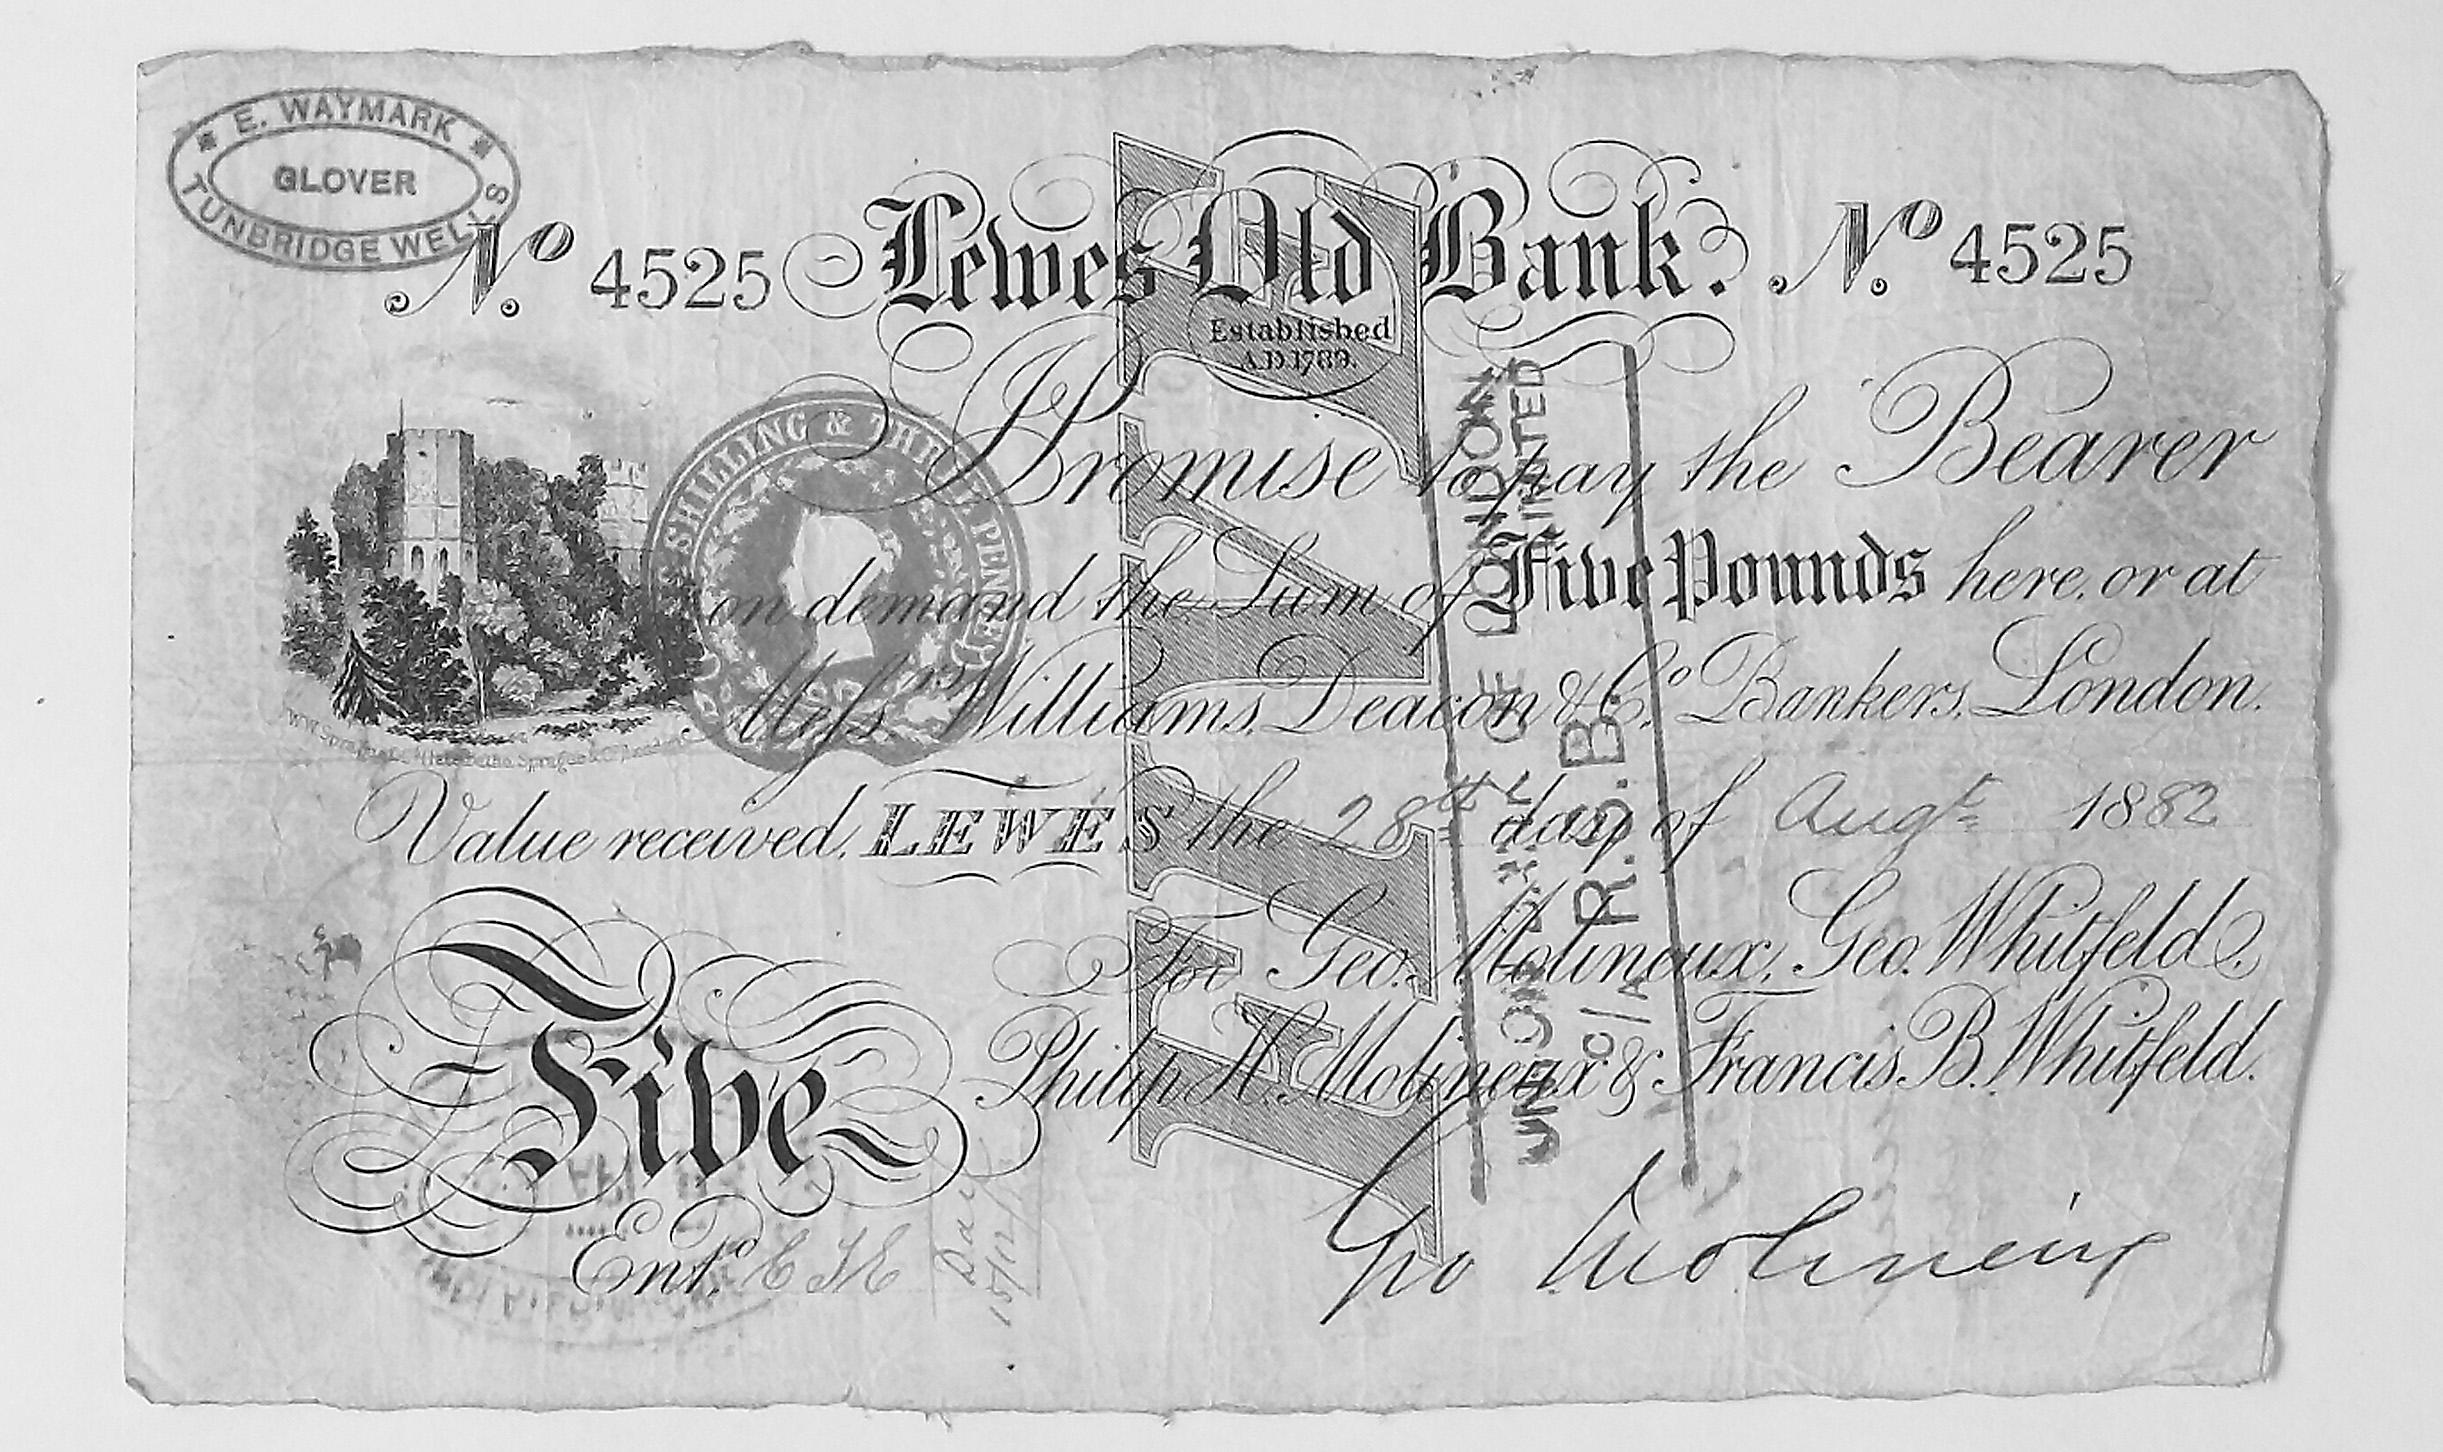 E. WAYMARK
GLOVER
TUNBRIDGE WELLS
No. 4525 Lewes Old Bank. No. 4525
Established
A.D. 1789.
I Promise to pay the Bearer
on demand the Sum of Five Pounds here, or at
Messrs. Williams, Deacon & Co. Bankers, London.
SHILLING & THREE PENCE
Value received, LEWES the 28th day of Augt. 1882
For Geo. Molineux, Geo. Whitfeld,
Philip H. Molineux & Francis B. Whitfeld.
Five
Entd.
Day
15/12/
Geo Molineux
FIVE
OF LONDON
LIMITED
R.S.B.
C/A